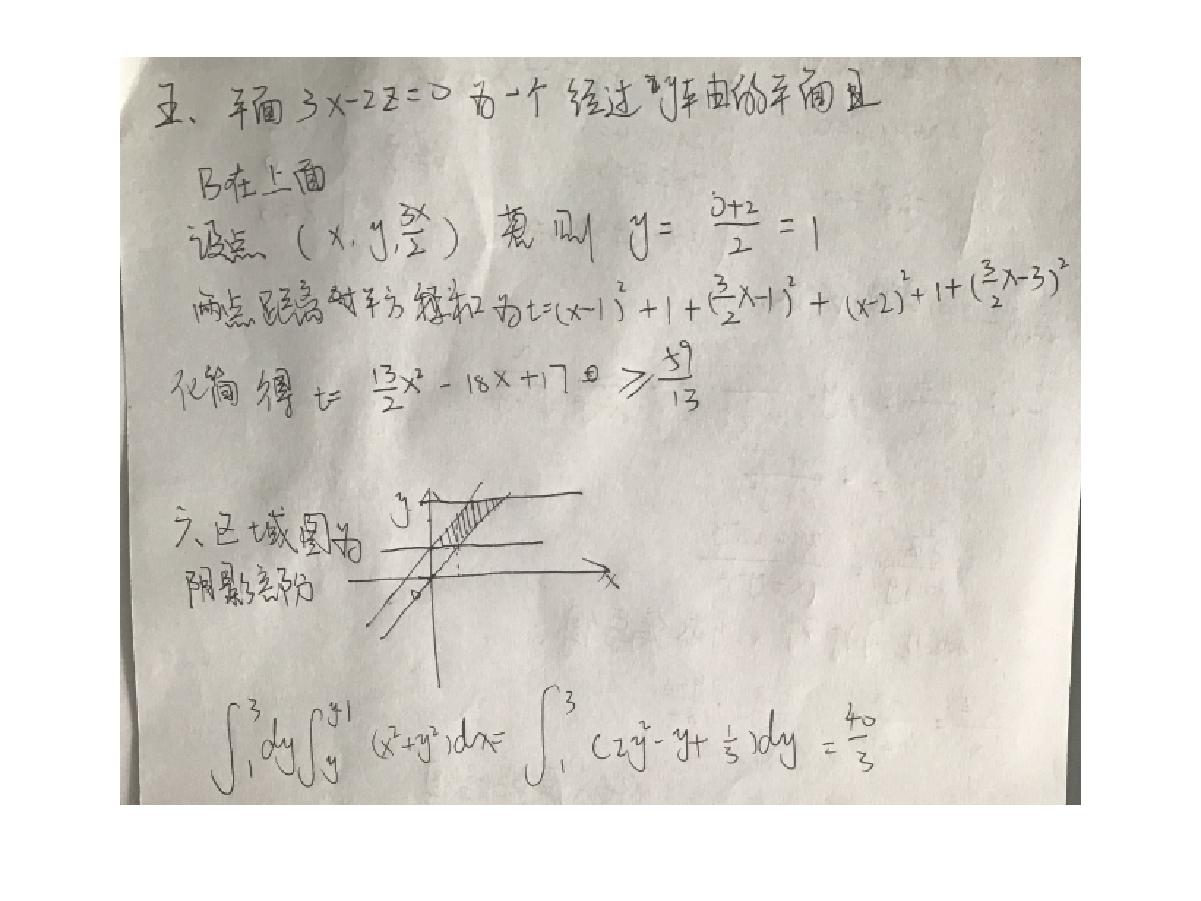 五、平面 3x-2z=0 为一个经过y车由的平面且
B在上面
设点 (x, y, 3x/2) 则 y= (0+2)/2 =1
两点距离 平方 和为t=(x-1)²+1+(3/2x-1)²+(x-2)²+1+(3/2x-3)²
化简得 t= 13/2x²-18x+17 ≥ 59/13
y
六、区域图为
阴影部分
x
∫₁³dy∫_y^{y+1}(x²+y²)dx=∫₁³(2y²-y+1/3)dy=40/3